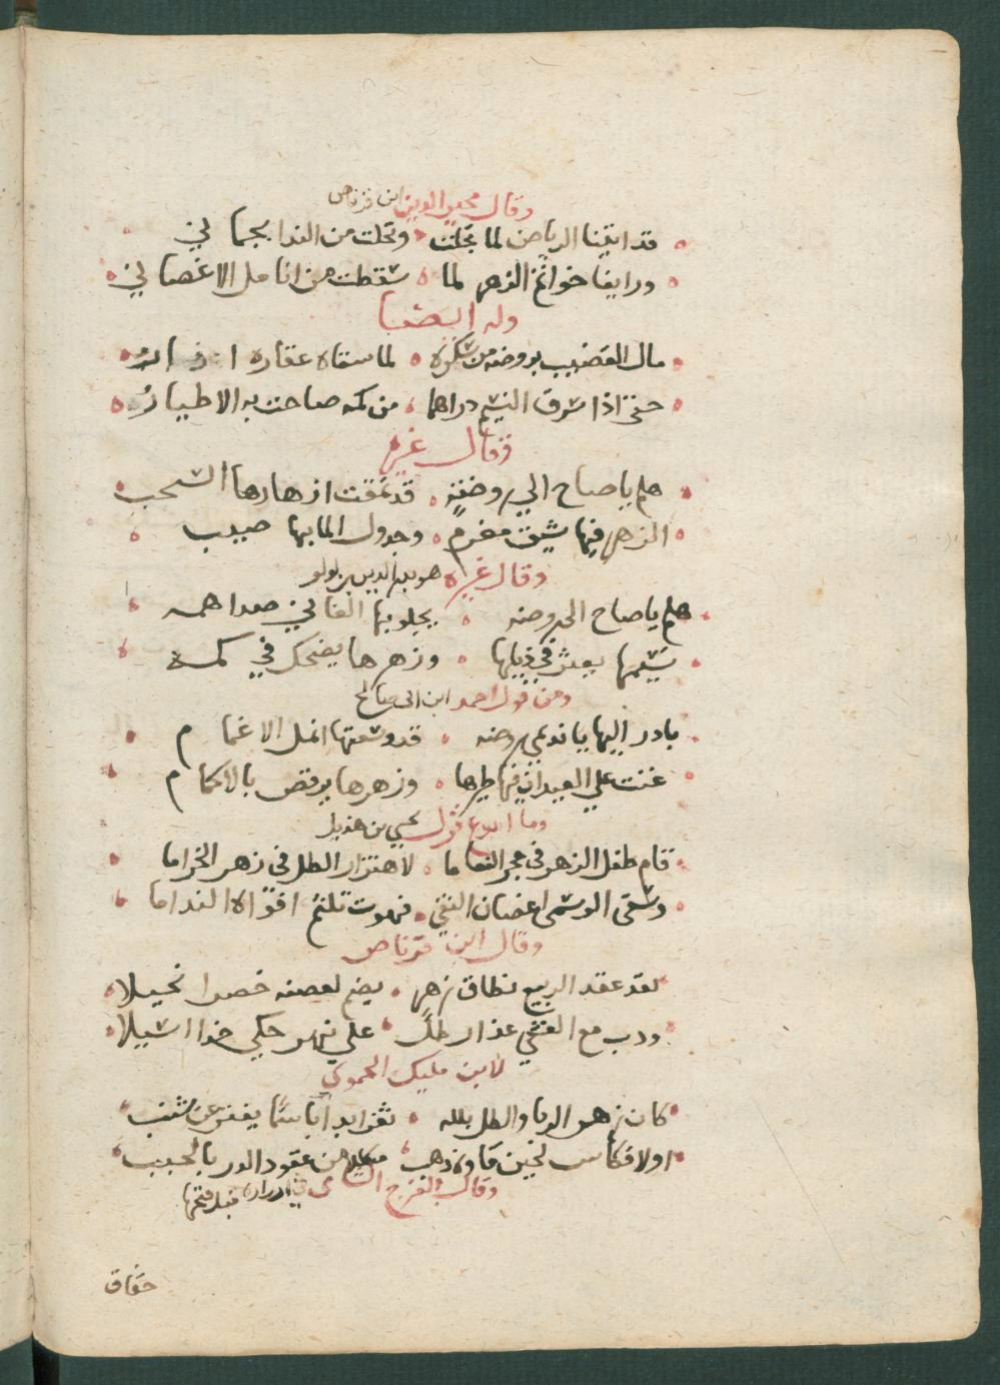 وقال محيي الدين ابن قرناص
قد اتينا الرياض لما تجلت وتحلت من الندا بجما ني
وراينا خواتم الزهر لما سقطت من انامل الاغصاني
وله ايضا
مال القضيب بروضه من سكره لما سقاه عقاره
حتي اذا سرق النسيم دراهما من كمه صاحت به الاطيار
وقال غيره
هلم يا صاح الي روضة قد نمقت ازهارها السحب
الزهر فيها شيق مغرم وجدول الما بها صيب
وقال غيره هو بدر الدين بن لولو
هلم يا صاح الى روضه يجلو بها العاني صدا همه
نسيمها يعثر في ذيلها وزهرها يضحك في كمه
ومن قول احمد ابن ابي صالح
بادر اليها يا نديمي بروضه قد وشعتها انمل الاغما م
غنت علي العيدان فيها طيرها وزهرها يرقص بالاكما م
وما ابدع قول يحيي بن هذيل
قام طفل الزهر في حجر النعاما لاهتزار الطل في زهر الخزاما
وسقى الوسمى اغصان النقي فهوت تلثم افواه النداما
وقال ابن قرناص
لقد عقد الربيع نطاق زهر يضم لغصنه خصرا نحيلا
ودب مع العشي عذار ظل علي نهر حكي خدا اسيلا
لابن مليك الحموي
كان زهر الربا والطل بلله ثغر ابدا باسما يفتر عن شنب
اولا فكاس لجين فاوة ذهب مكلل من عقود الدر بالحبب
وقال ابو الفرج قبل فتحها
حقاق